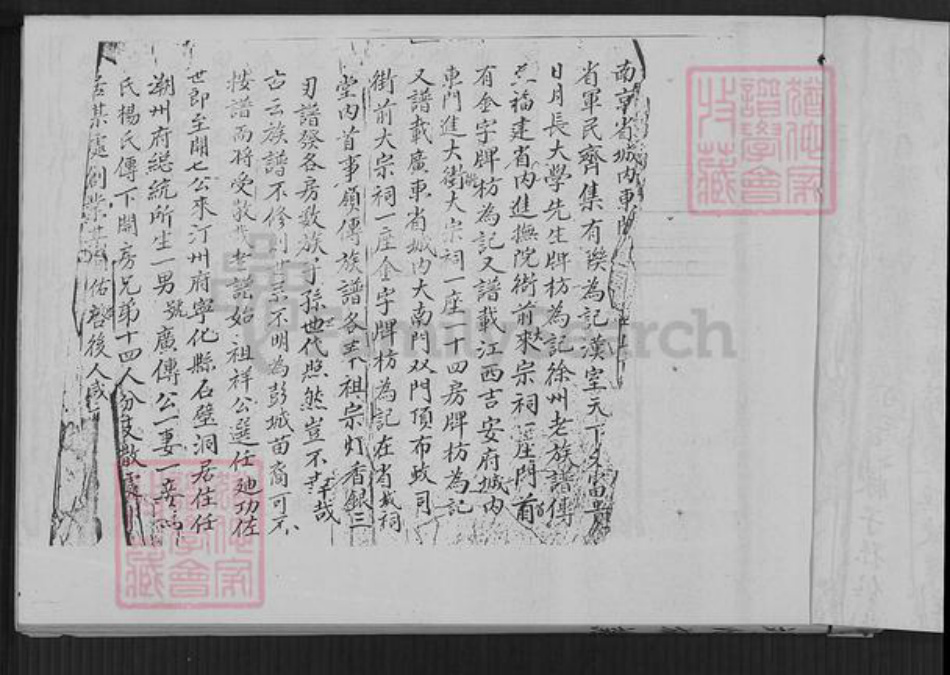 南京省城內東
省軍民齊集有幾為記漢室天下
日月長大学先生牌枋為記徐州老族譜傳
福建省內進撫院街前來宗祠一座門前
有金字牌枋為記又譜載江西吉安府城內
東門進大街大宗祠一座一十四房牌枋為記
又譜載廣東省城內大南門双門頂布政司
街前大宗祠一座金字牌枋為記在省城祠
堂內首事領傳族譜各房祖宗灯香銀三
刃譜發各房数族子孫世代照然豈不幸哉
古云族譜不修則世系不明為彭城苗裔可不
按譜而將受敬老譜始祖祥公選任廸功佐
世郎至開七公來汀州府寧化縣石壁洞居住任
潮州府総統所生一男號廣傳公二妻一
氏楊氏傳下開房兄弟十四人分支散處
居某處創業其祖佑啓後人咸
猶他家
譜學會
收藏
猶他家
譜學會
收藏
FamilySearch